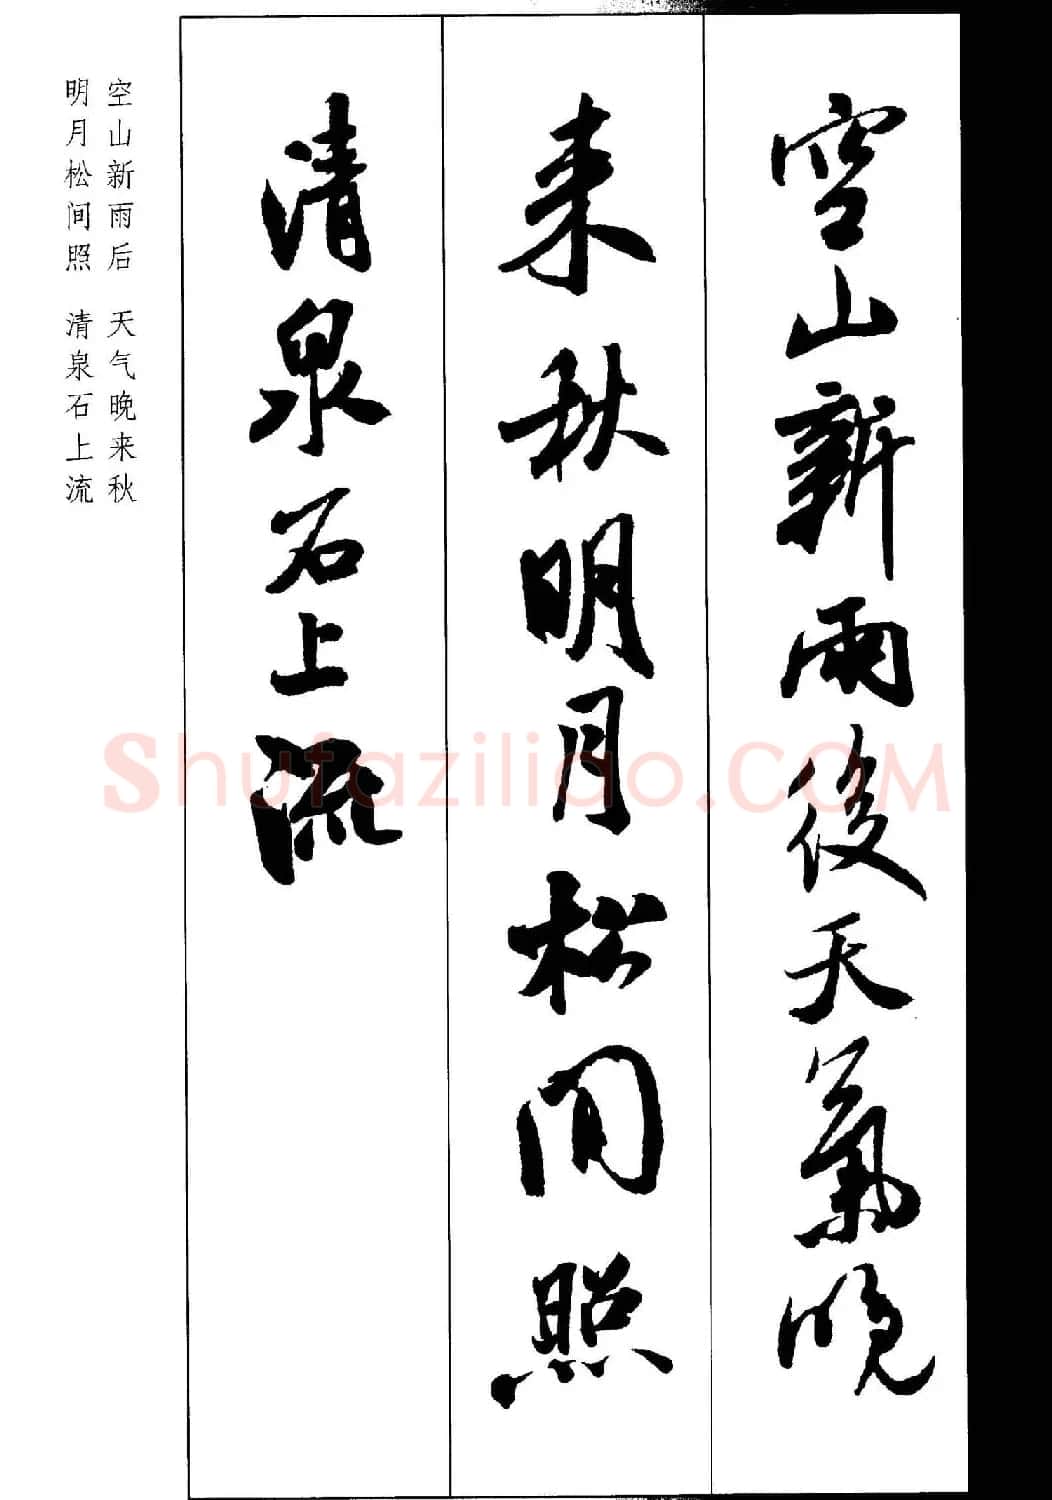 空山新雨後天氣晚
来秋明月松间照
清泉石上流
空山新雨后 天气晚来秋
明月松间照 清泉石上流
Shufaziliao.COM